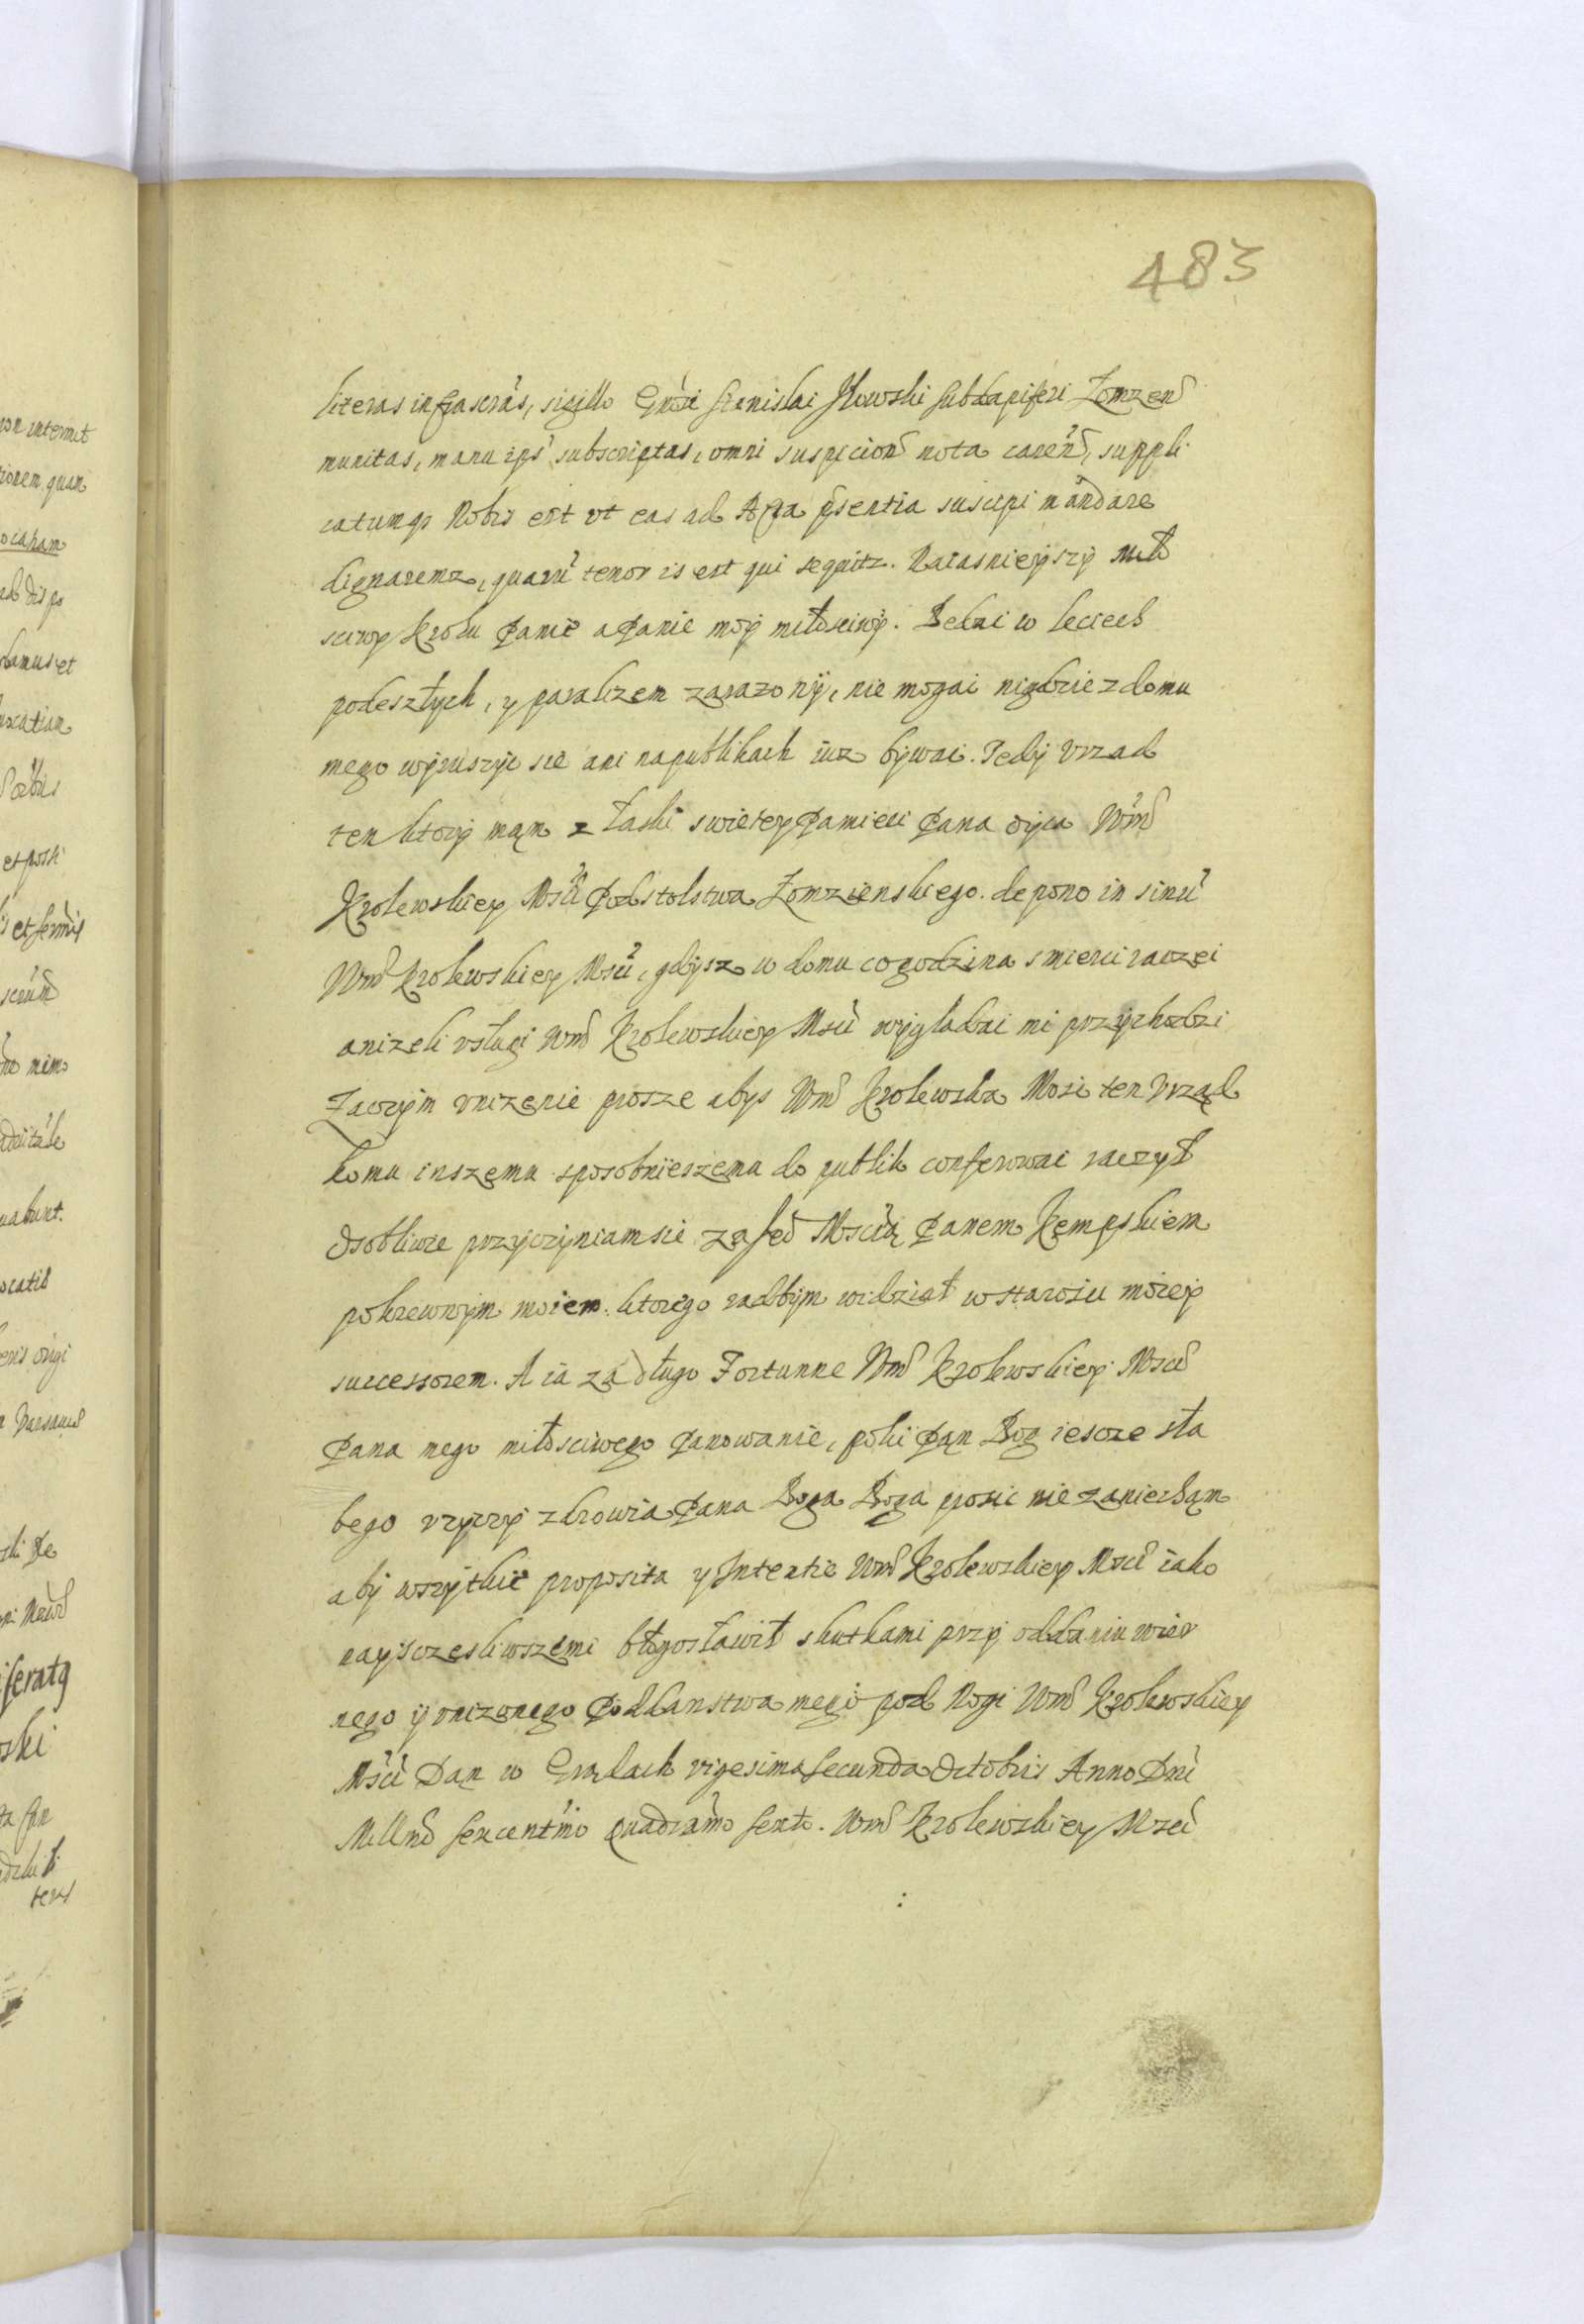 483
literas infrascras, sigillo Gnosi Stanislai Ilowski Subdapiferi Łomzen
munitas, manu ips subscriptas, omni suspicion nota caren, suppli
catumqz Nobis est vt eas ad Acta psentia suscipi mandare
dignaremz, quaru tenor is est qui sequitz. Naiasnieyszy Miło
sciwy Krolu Panie a Panie moy miłosciwy. Bedąc w leciech
podeszłych, y paralizem zarazony, nie mogąc nigdzie z domu
mego wyruszyc sie ani na publikach iuz bywac. Tedy vrzad
ten ktory mam z łaski swietey Pamieci Pana oyca Wm
Krolewskiey Msci Podstolstwa Łomzienskiego. depono in sinu
Wm Krolewskiey Msci, gdysz w domu co godzina smierci raczei
anizeli vsługi Wm Krolewskiey Msci wyglądac mi przychodzi
Zaczym vnizenie prosze abys Wm Krolewska Mosc ten Vrząd
komu inszemu sposobnieszemu do publik conferowac raczył
Osobliwie przyczyniam sie za Je Mscią Panem Kempskiem
pokrewnym moiem. ktorego radbym widział w starosci moiey
successorem. A ia za długo Fortunne Wm Krolewskiey Msci
Pana mego miłosciwego Panowanie, poki Pan Bog iescze sła
bego vzyczy zdrowia Pana Boga Boga prosic nie zaniecham
aby wszytkie proposita y Intentie Wm Krolewskiey Msci iako
nayszczesliwszemi błogosławił skutkami przy oddaniu wier
nego y vnizonego Poddanstwa mego pod Nogi Wm Krolewskiey
Msci Dan w vigesima secunda Octobris Anno Dni
Millmo sexcentmo quadramo sexto. Wm Krolewskiey Msci